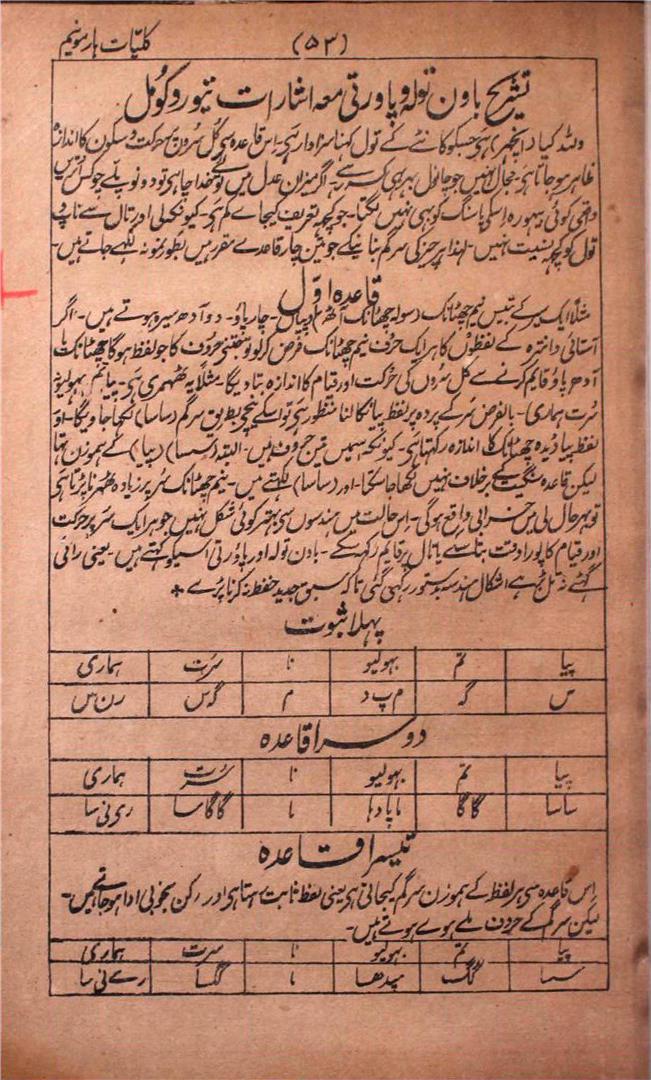 کلیات ہارمونیم
(۵۳)
تشریح باون تولہ و پاورتی معہ اشارات تیور و کومل
کیا زنجیر ہے جسکو کانٹے کے تول کہنا سزاوار ہی۔ اس قاعدہ سی کل سرون پر حرکت و سکون کا اندازہ
ظاہر ہو جاتا ہی۔ مجال نہیں جو چانول بھر بھی کسر رہے۔ اگر میزان عدل میں تولے خدا چاہی تو دونو پلے
واقعی کوئی بیہورہ اسکی پاسنگ کو بھی نہیں لگتا۔ جو کچھ تعریف کیجاے کم ہی۔ کیونکہ لی اور تال سے ناپ
تول کو کچھ نسبت نہیں۔ لہذا ہر چیز کی سرگم بنانیکے جو تین چار قاعدے مقرر ہیں بطور نمونہ لکھے جاتے ہیں۔
قاعدہ اوّل
مثلاً ایک سیر کے بتیس نیم چھٹانک (سولہ چھٹانک آٹھ ادپیاں۔ چار پاؤ۔ دو آدھ سیر ہوتے ہیں۔ اگر
آستائی و انترہ کے لفظوں کا ہر ایک حرف نیم چھٹانک فرض کر لو تو جتنی حروف کا جو لفظ ہو گا چھٹانک یا
آدھ پاؤ قایم کرنے سے کل سروں کی حرکت اور قیام کا اندازہ بتا دیگا۔ مثلاً یہ ٹھمری ہی۔ پیا تم بہولیو نا
سُرت ہماری۔ بالفرض سُر کے پردہ پر لفظ پیا نکالنا منظور ہی تو اسکے نیچے بطریق سرگم (ساسا) لکھا جاویگا۔ اور
لفظ پیا ڈیڑہ چھٹانک کا اندازہ رکھتا ہی۔ کیونکہ اسمیں تین حروف ہیں۔ البتہ (سسا) (پیا) کے ہموزن تھا
لیکن قاعدہ سنگیت کے برخلاف نہیں لکھا جا سکتا۔ اور (ساسا) لکہتے میں۔ نیم چھٹانک سُر پر زیادہ ٹھہرنا پڑتا ہی
تو بہر حال لی میں خرابی واقع ہو گی۔ اس حالت میں ہندسوں سی بہتر کوئی شکل نہیں جو ہر ایک سُر پر حرکت
اور قیام کا پورا وقت بتا سکے یا تال پر قایم رکہہ سکے۔ باون تولہ اور پاؤ رتی اسیکو کہتے ہیں۔ یعنی رائی
گھٹے نہ تل بڑہے اشکال ہندسہ بدستور رکھی گئی تاکہ سبق جدید حفظ نہ کرنا پڑے
پہلا ثبوت
پیا تم بہولیو نا سرت ہماری
س گ م پ د م گ س رن س
دوسرا قاعدہ
پیا تم بہولیو نا سرت ہماری
ساسا گاگا ماپادہا ما گاگاسا ری نی سا
تیسرا قاعدہ
اس قاعدہ سی ہر لفظ کے ہموزن سرگم کیجاتی ہی یعنی لفظ ثابت رہتا ہی اور رکن بخوبی ادا ہو جاتے ہیں۔
لیکن سرگم کے حروف ملے ہوے ہوتے ہیں۔
پیا تم بہولیو نا سرت ہماری
سسا گگ مپدھا ما گگسا رے نی سا